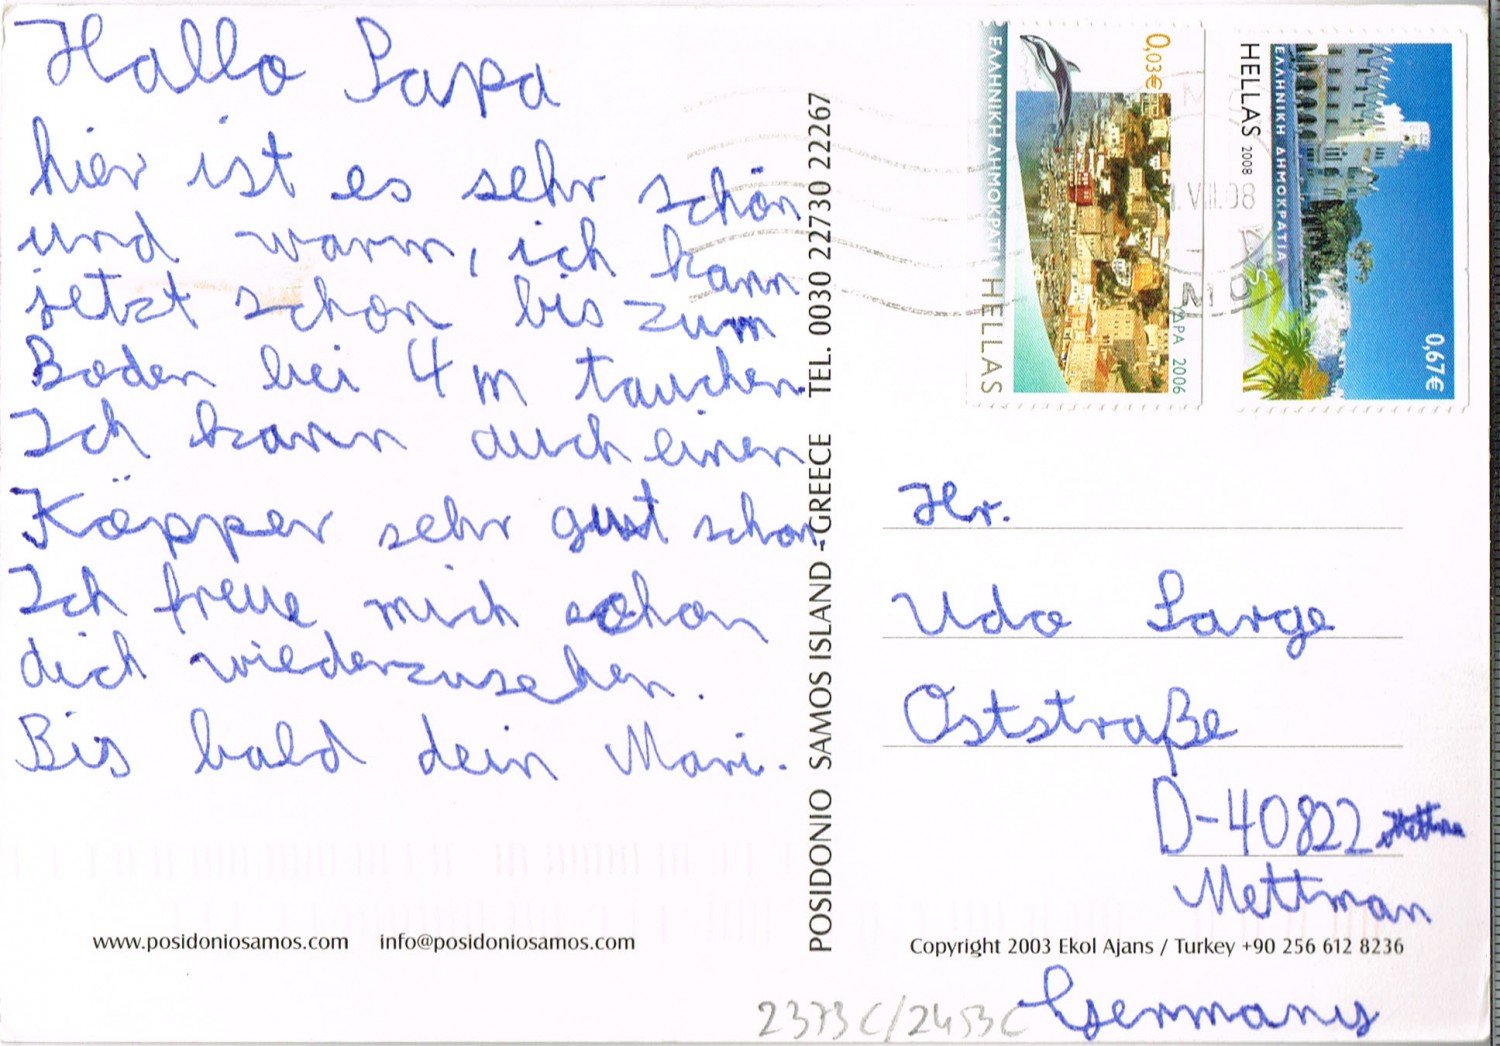 Hallo Papa
hier ist es sehr schön
und warm, ich kann
jetzt schon bis zum
Boden bei 4 m tauchen.
Ich kann auch einen
Köpper sehr gut schon.
Ich freue mich schon
dich wiederzusehen.
Bis bald dein Mari.
www.posidoniosamos.com info@posidoniosamos.com
POSIDONIO SAMOS ISLAND - GREECE TEL. 0030 22730 22267
ΕΛΛΗΝΙΚΗ ΔΗΜΟΚΡΑΤΙΑ HELLAS
0,03€
ΥΔΡΑ 2006
HELLAS 2008
ΕΛΛΗΝΙΚΗ ΔΗΜΟΚΡΑΤΙΑ
0,67€
VII.08
Hr.
Udo Large
Oststraße
D-40822
Mettman
Germany
Copyright 2003 Ekol Ajans / Turkey +90 256 612 8236
2373C/2453C